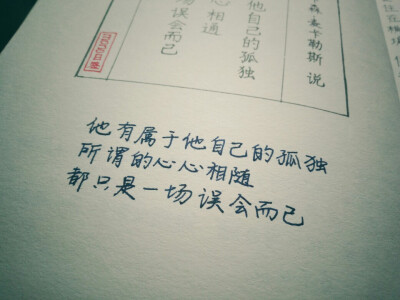 森·麦卡勒斯 说
他自己的孤独
心相通
场误会而已
他有属于他自己的孤独
所谓的心心相随
都只是一场误会而已